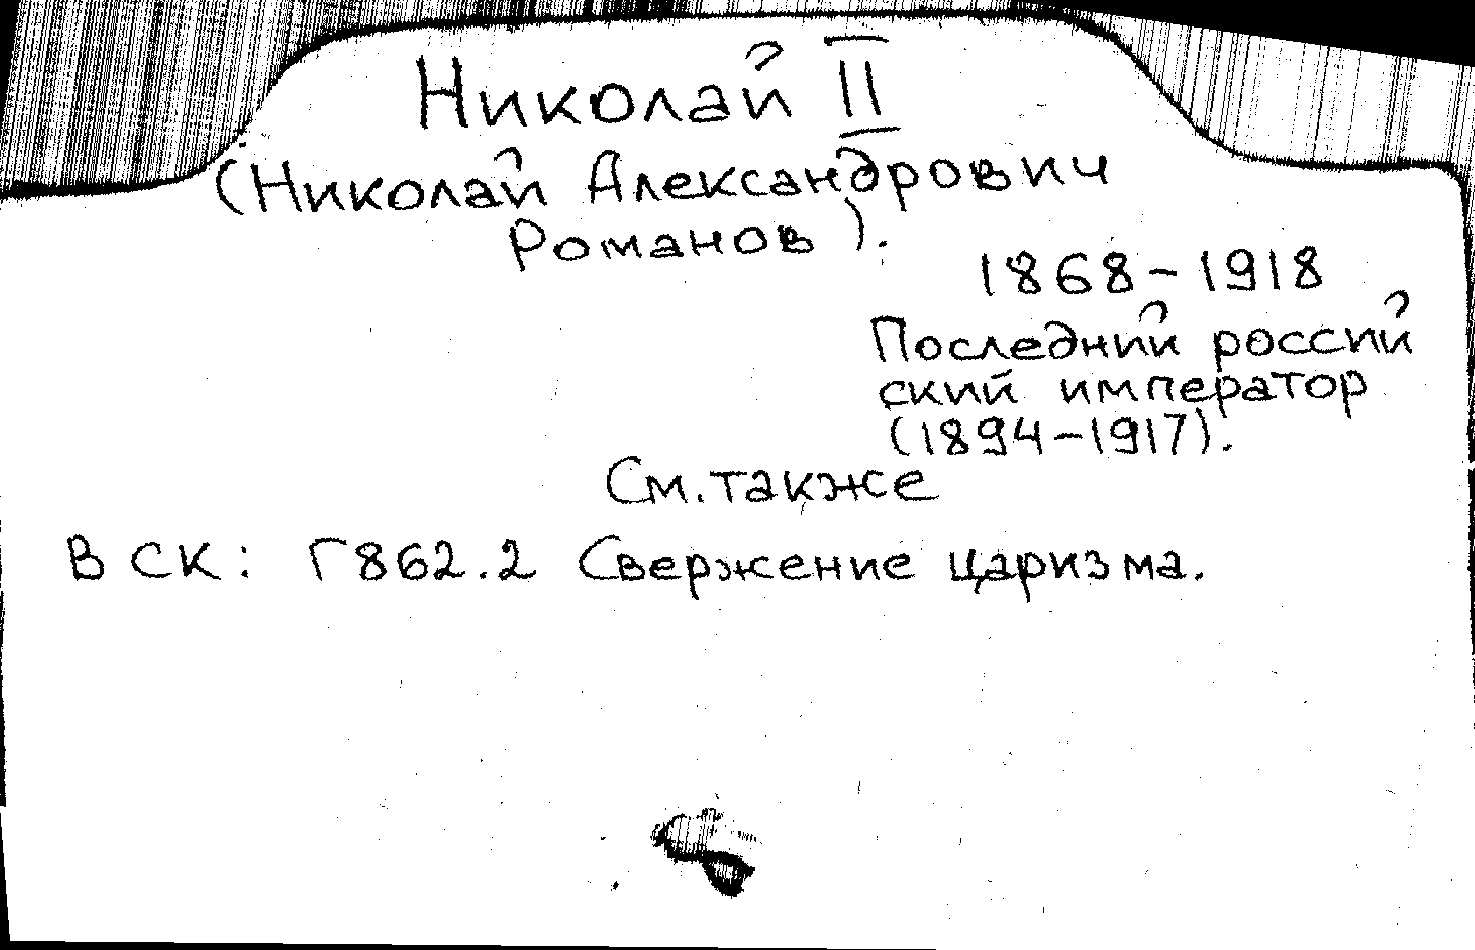 Николай II
(Николай Александрович
Романов).
1868-1918
Последний россий
ский император
(1894-1917).
См. также
В СК: Г862.2 Свержение царизма.